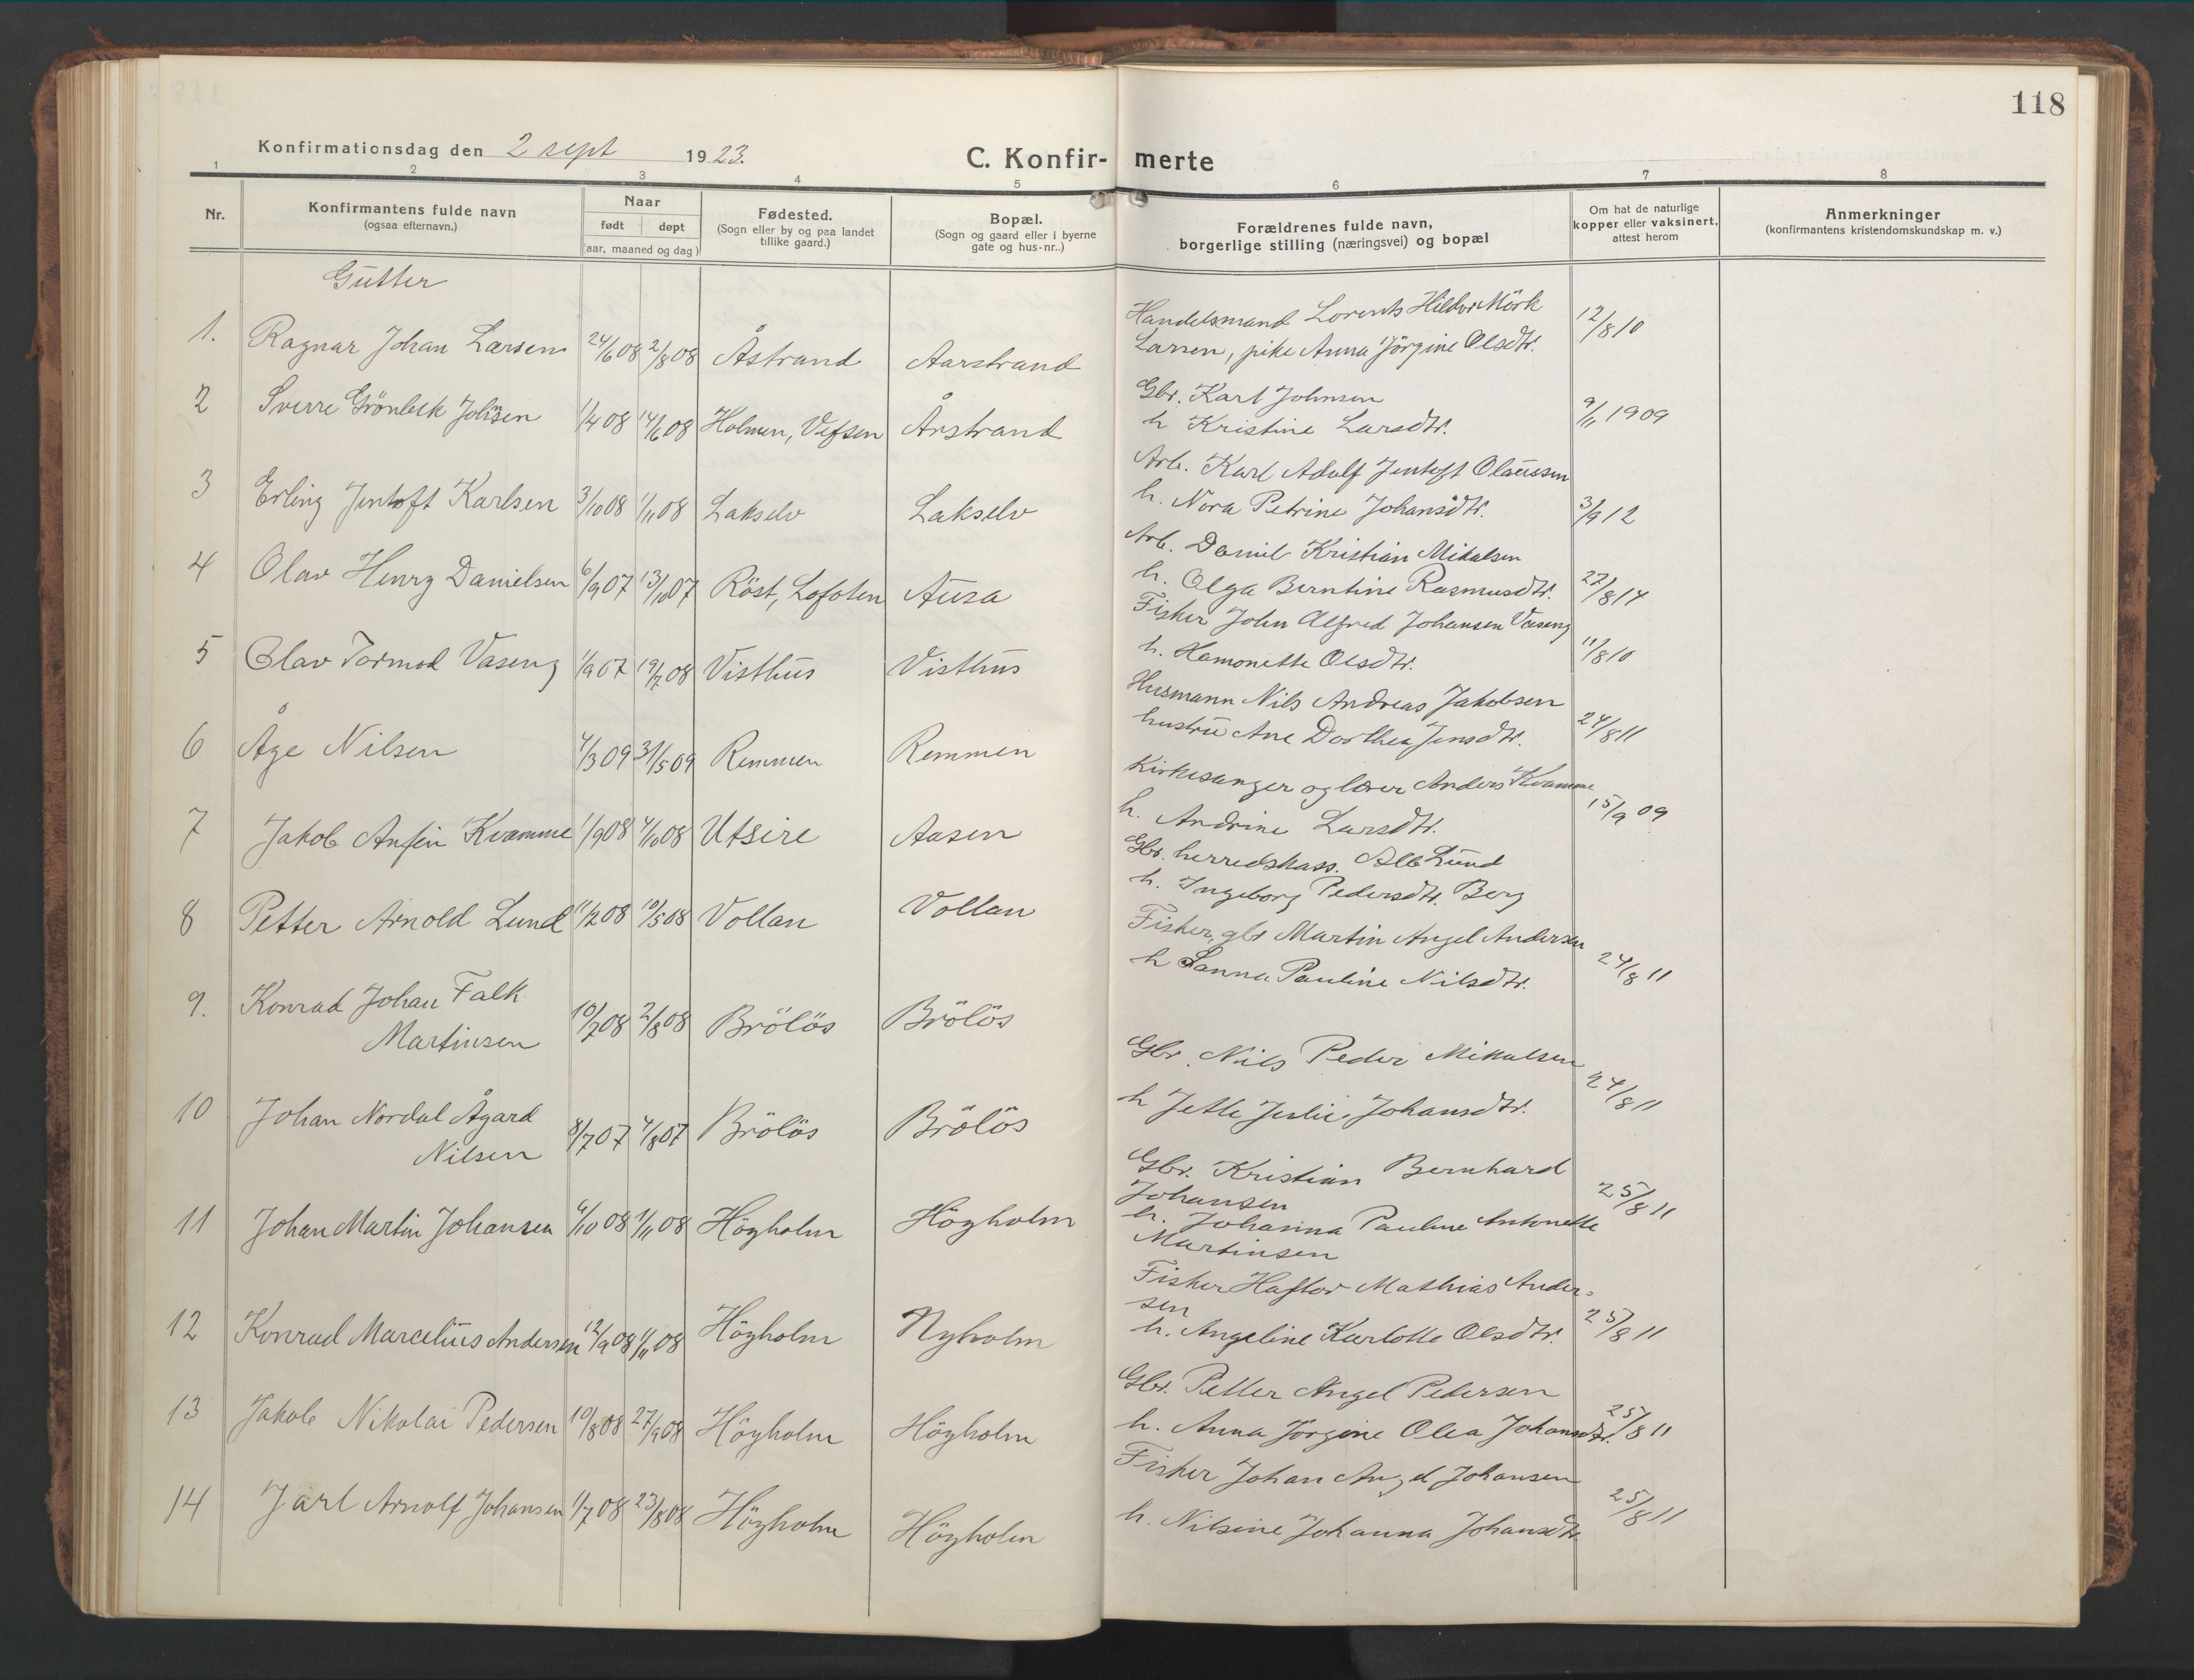 118
Konfirmationsdag den 2 sept 1923.
C. Konfir- merte
1 2 3 4 5 6 7 8
Nr.
Konfirmantens fulde navn
(ogsaa efternavn.)
Naar
født døpt
(aar, maaned og dag)
Fødested.
(Sogn eller by og paa landet
tillike gaard.)
Bopæl.
(Sogn og gaard eller i byerne
gate og hus-nr..)
Forældrenes fulde navn,
borgerlige stilling (næringsvei) og bopæl
Om hat de naturlige
kopper eller vaksinert,
attest herom
Anmerkninger
(konfirmantens kristendomskundskap m. v.)
Gutter
1. Ragnar Johan Larsen 24/6 08 2/8 08 Åstrand Aarstrand
Handelsmand Lorents Hildor Mörk
Larsen, pike Anna Jörgine Olsdtr. 12/8 10
2 Sverre Grönbeck Johnsen 1/4 08 14/6 08 Holmen, Vefsen Årstrand
Gbr. Karl Johnsen
h Kristine Larsdtr. 9/11 1909
3 Erling Jentoft Karlsen 3/10 08 1/11 08 Lakselv Lakselv
Arb. Karl Adolf Jentoft Olaussen
h. Nora Petrine Johansdtr. 3/9 12
4 Olav Henry Danielsen 6/9 07 13/10 07 Röst, Lofoten Ausa
Arb. Daniel Kristian Mikalsen
h. Olga Berntine Rasmusdtr. 27/8 14
5 Olav Tormod Vaseng 1/9 07 19/7 08 Visthus Visthus
Fisker John Alfred Johansen Vaseng
h. Hamonette Olsdtr. 11/8 10
6 Åge Nilsen 4/3 09 31/5 09 Remmen Remmen
Husmann Nils Andreas Jakobsen
hustru Ane Dorthea Jensdtr. 24/8 11
7 Jakob Anfin Kvamme 1/9 08 4/10 08 Utsire Aasen
Kirkesanger og lærer Anders Kvamme
h. Andrine Larsdtr. 15/9 09
8 Petter Arnold Lund 11/2 08 10/5 08 Vollan Vollan
Gbr. herredskass. Alb Lund
h. Ingeborg Pedersdtr. Berg
9. Konrad Johan Falk
Martinsen 10/7 08 2/8 08 Brölös Brölös
Fisker, gbr Martin Angel Andersen
h Sanna Pauline Nilsdtr. 24/8 11
10 Johan Nordal Ågard
Nilsen 8/7 07 4/8 07 Brölös Brölös
Gbr. Nils Peder Mikalsen
h Jette Julie Johansdtr. 24/8 11
11 Johan Martin Johansen 6/10 08 1/11 08 Högholm Högholm
Gbr. Kristian Bernhard
Johansen
h. Johanna Pauline Antonette
Martinsen 25/8 11
12 Konrad Marcelius Andersen 12/9 08 1/11 08 Högholm Nyholm
Fisker Haftor Mathias Ander-
sen
h. Angeline Karlotte Olsdtr. 25/8 11
13 Jakob Nikolai Pedersen 10/8 08 27/9 08 Högholm Högholm
Gbr. Petter Angel Pedersen
h. Anna Jörgine Olea Johansdtr. 25/8 11
14 Jarl Arnolf Johansen 1/7 08 23/8 08 Högholm Högholm
Fisker Johan Angel Johansen
h. Nilsine Johanna Johansdtr. 25/8 11